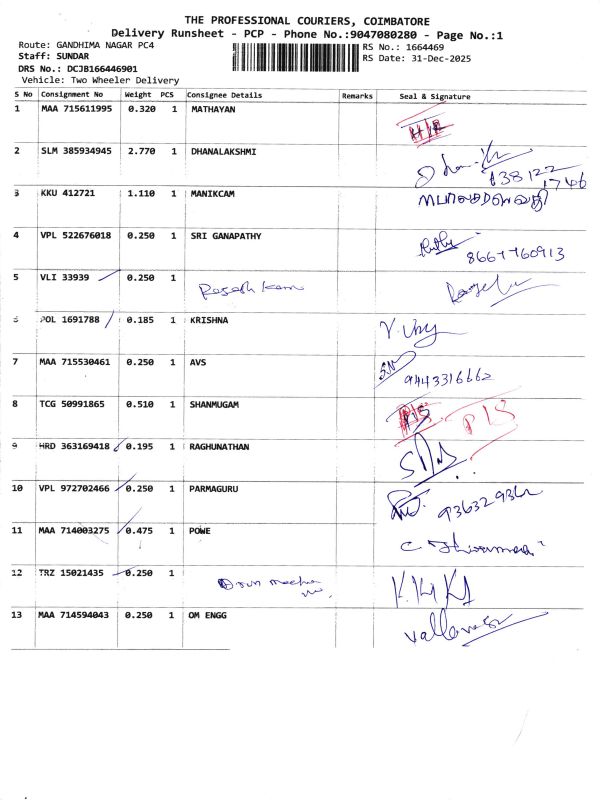 THE PROFESSIONAL COURIERS, COIMBATORE
Delivery Runsheet - PCP - Phone No.:9047080280 - Page No.:1
Route: GANDHIMA NAGAR PC4
RS No.: 1664469
Staff: SUNDAR
RS Date: 31-Dec-2025
DRS No.: DCJB166446901
Vehicle: Two Wheeler Delivery
S No Consignment No Weight PCS Consignee Details Remarks Seal & Signature
1 MAA 715611995 0.320 1 MATHAYAN
2 SLM 385934945 2.770 1 DHANALAKSHMI
3 KKU 412721 1.110 1 MANIKCAM
4 VPL 522676018 0.250 1 SRI GANAPATHY
5 VLI 33939 0.250 1
6 POL 1691788 0.185 1 KRISHNA
7 MAA 715530461 0.250 1 AVS 9443316662
8 TCG 50991865 0.510 1 SHANMUGAM
9 HRD 363169418 0.195 1 RAGHUNATHAN
10 VPL 972702466 0.250 1 PARMAGURU
11 MAA 714003275 0.475 1 POWE
12 TRZ 15021435 0.250 1
13 MAA 714594043 0.250 1 OM ENGG